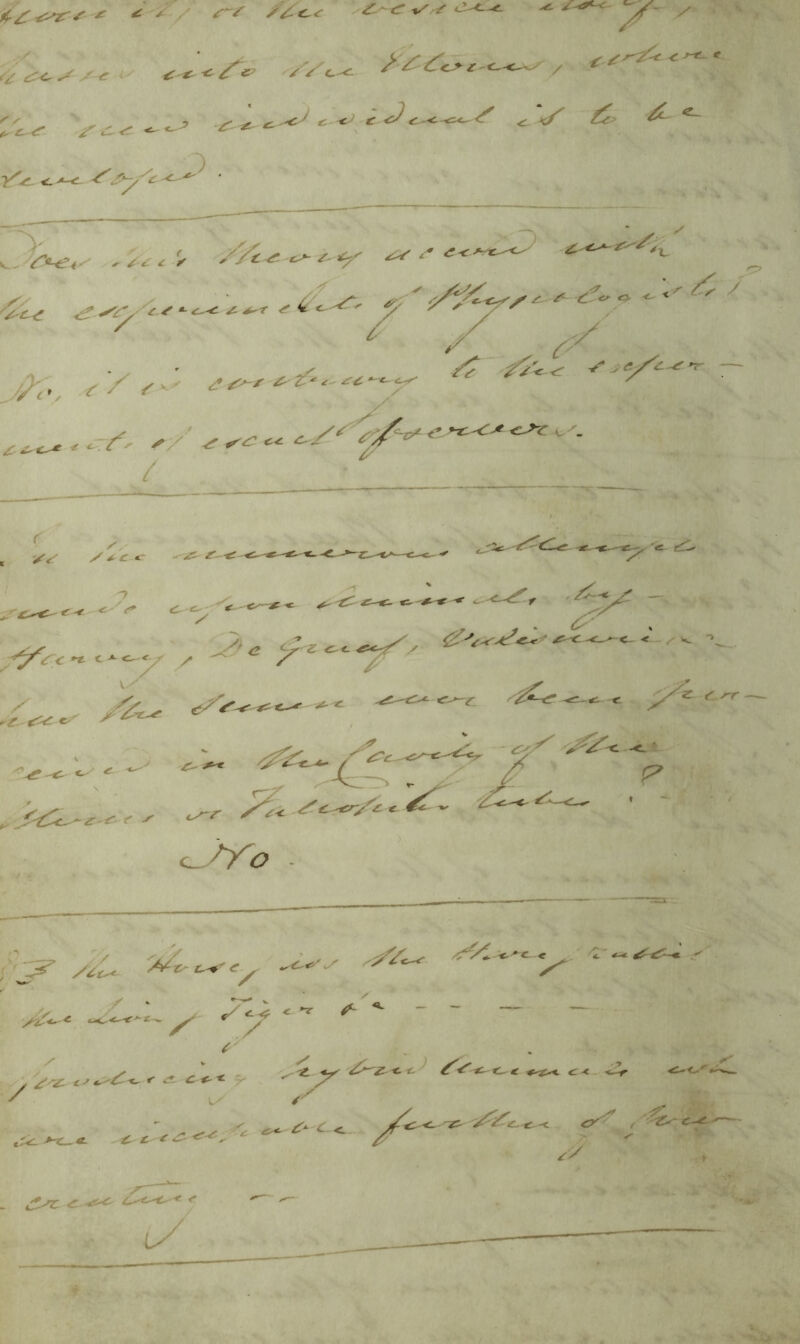 into the Uterus, where
the new individual is to be
developed.
Does this theory accord with
the experiments of Physiologists?
No, it is contrary to the exper-
iments of exact observers.
In the numerous attempts
made upon animals, by -
Harvey, De Graaf, Valisneri,
has the Semen ever been per-
ceived in the Cavity of the
Uterus or Fallopian tubes?
No.
The Horse, Ass, the Sheep,
the Lion, Tiger &c - - - -
producing hybrid Animals
are incapable further of pro-
creating - -